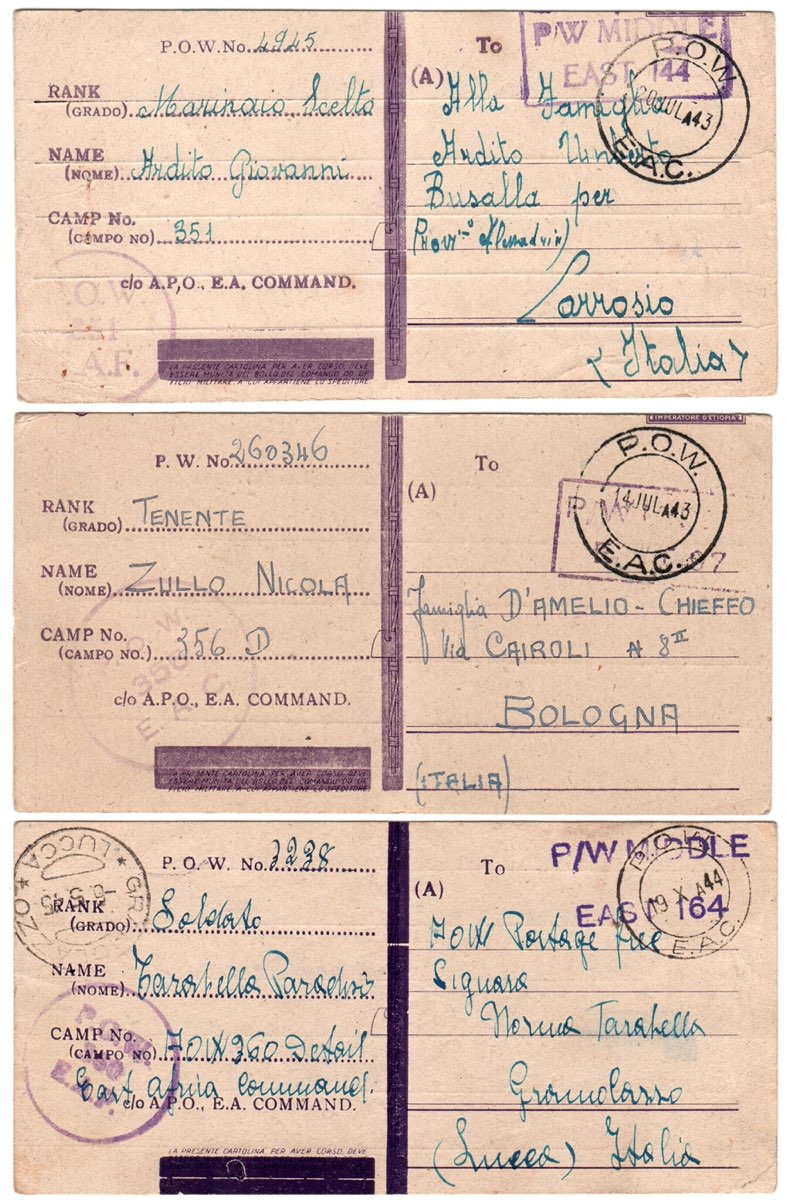 P.O.W. No. 4945
RANK
(GRADO) Marinaio Scelto
NAME
(NOME) Ardito Giovanni
CAMP No.
(CAMPO NO) 351
c/o A.P.O., E.A. COMMAND.
P.O.W.
351
E.A.F.
LA PRESENTE CARTOLINA PER AVER CORSO DEVE
ESSERE MUNITA DEL BOLLO DEL COMANDO OD UF
FICIO MILITARE A CUI APPARTIENE LO SPEDITORE
To
P/W MIDDLE
EAST 144
P.O.W.
20 JUL A43
E.A.C.
(A) Alla Famiglia
Ardito
Busalla per
Carrosio
(Italia)
P. W. No. 260346
RANK
(GRADO) TENENTE
NAME
(NOME) ZULLO NICOLA
CAMP No.
(CAMPO NO.) 356 D
c/o A.P.O., E.A. COMMAND.
P.O.W
356
E.A.C
LA PRESENTE CARTOLINA PER AVER CORSO DEVE
ESSERE MUNITA DEL BOLLO DEL COMANDO OD UF
FICIO MILITARE A CUI APPARTIENE LO SPEDITORE
IMPERATORE D'ETIOPIA
To
(A)
P.O.W.
14 JUL A43
E.A.C.
P/W
7
famiglia D'AMELIO - CHIEFFO
Via CAIROLI N 8 II
BOLOGNA
(ITALIA)
LUCCA
P. O. W. No. 3228
RANK
(GRADO) Soldato
NAME
(NOME) Tarabella
CAMP No.
(CAMPO NO) POW 360 Detail
East Africa Command.
c/o A.P.O., E.A. COMMAND.
P.O.W.
360
E.A.F.
LA PRESENTE CARTOLINA PER AVER CORSO DEVE
To
P/W MIDDLE
EAST 164
P.O.W.
19 X A44
E.A.C.
(A)
POW Postage free
Signora
Norma Tarabella
Gramolazzo
(Lucca) Italia